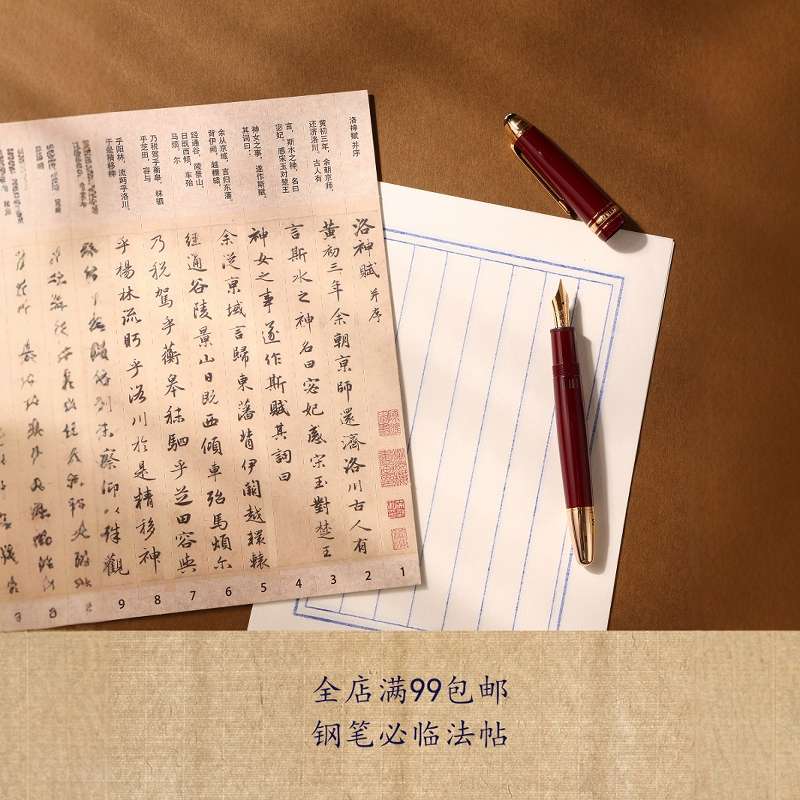 洛神赋 并序
黄初三年，余朝京师，
还济洛川。古人有
言，斯水之神，名曰
宓妃。感宋玉对楚王
神女之事，遂作斯赋，
其词曰：
余从京域，言归东藩，
背伊阙，越轘辕，
经通谷，陵景山。
日既西倾，车殆
马烦。尔
乃税驾乎蘅皋，秣驷
乎芝田，容与
乎阳林，流眄乎洛川。
于是精移神
洛神賦 并序
黄初三年余朝亰師還濟洛川古人有
言斯水之神名曰宓妃感宋玉對楚王
神女之事遂作斯賦其詞曰
余從亰域言歸東藩背伊闕越轘轅
經通谷陵景山日既西傾車殆馬煩尓
乃税駕乎蘅皋秣駟乎芝田容與
乎楊林流眄乎洛川於是精移神
察仰以殊觀
1
2
3
4
5
6
7
8
9
全店满99包邮
钢笔必临法帖